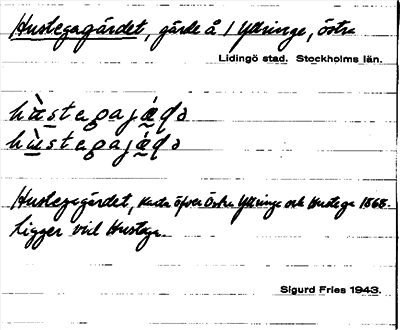 Hustegagärdet, gärde å 1 Yttringe, östra
Lidingö stad. Stockholms län.
hùstegajǽḍə
hùstegajǽḍə
Hustegagärdet, karta öfver Östra Yttringe och Hustega 1868.
Ligger vid Hustega.
Sigurd Fries 1943.